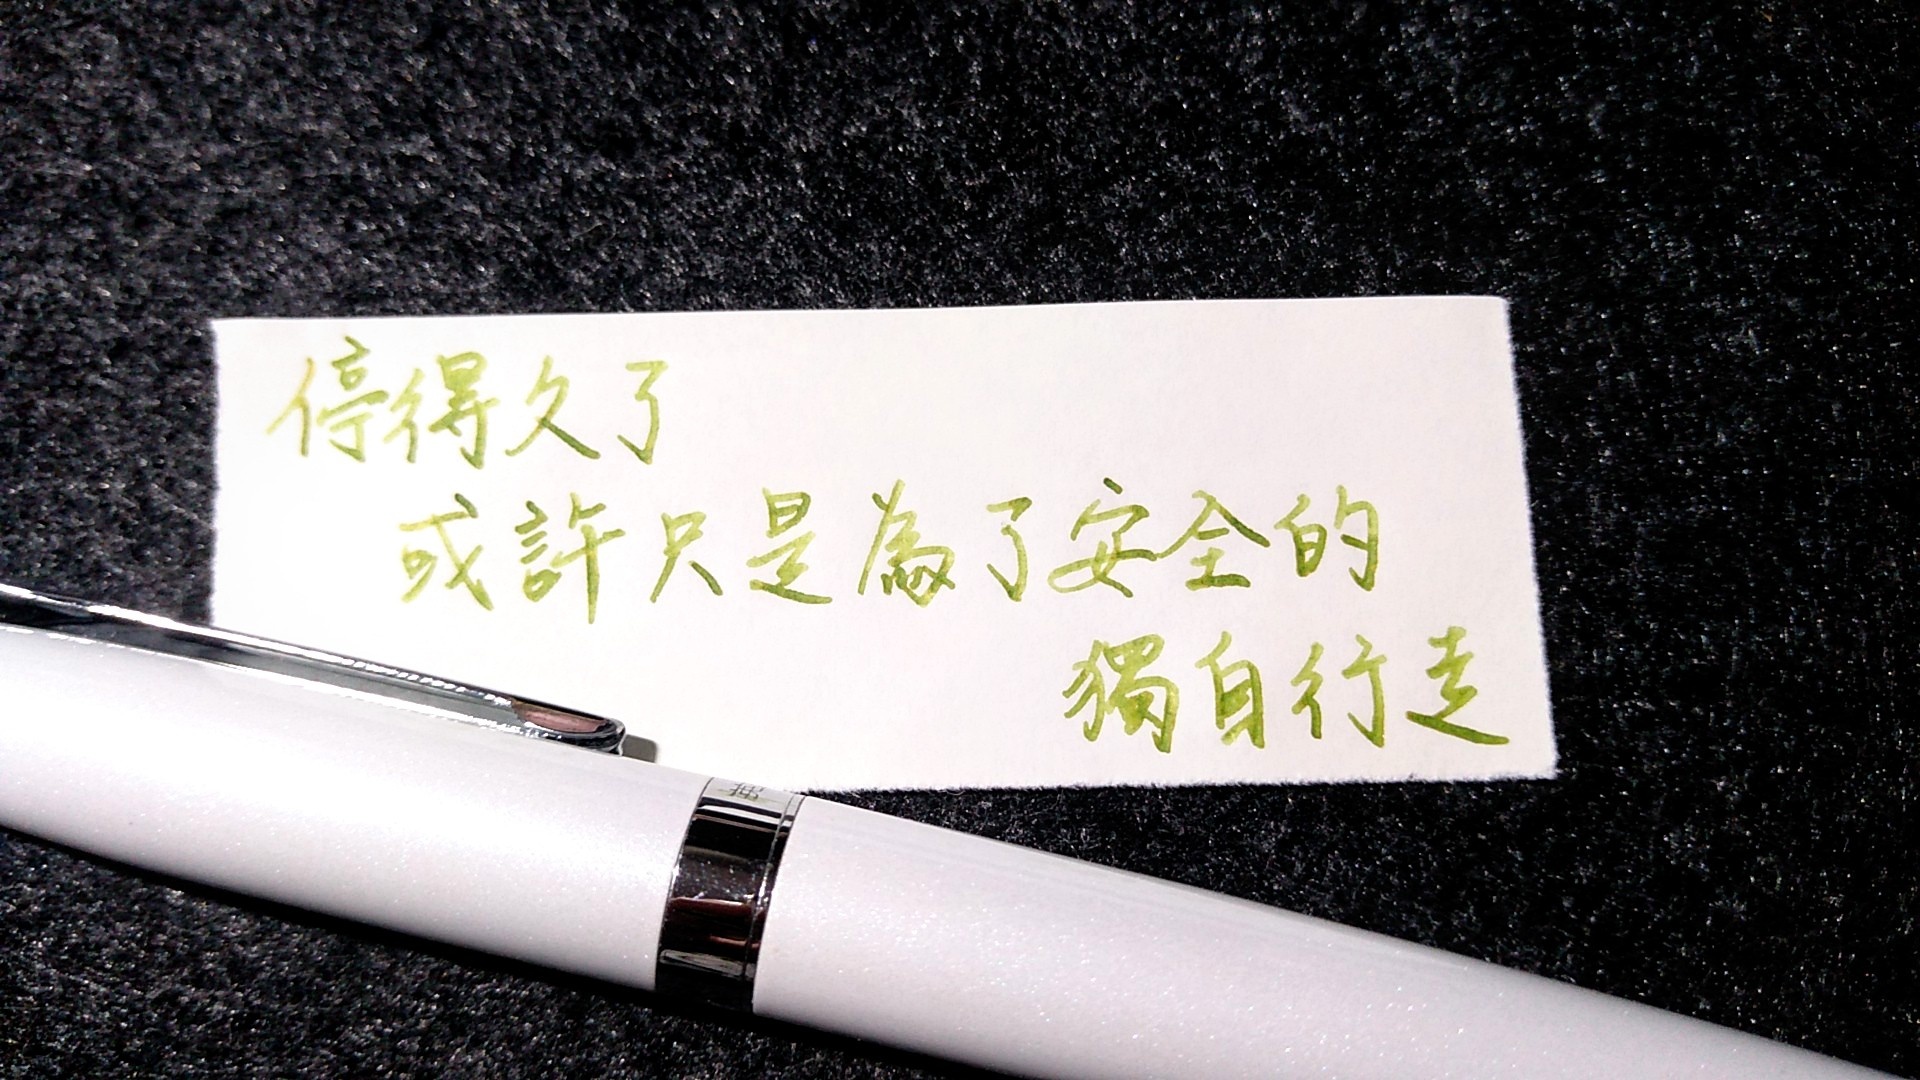 停得久了
或許只是為了安全的
獨自行走